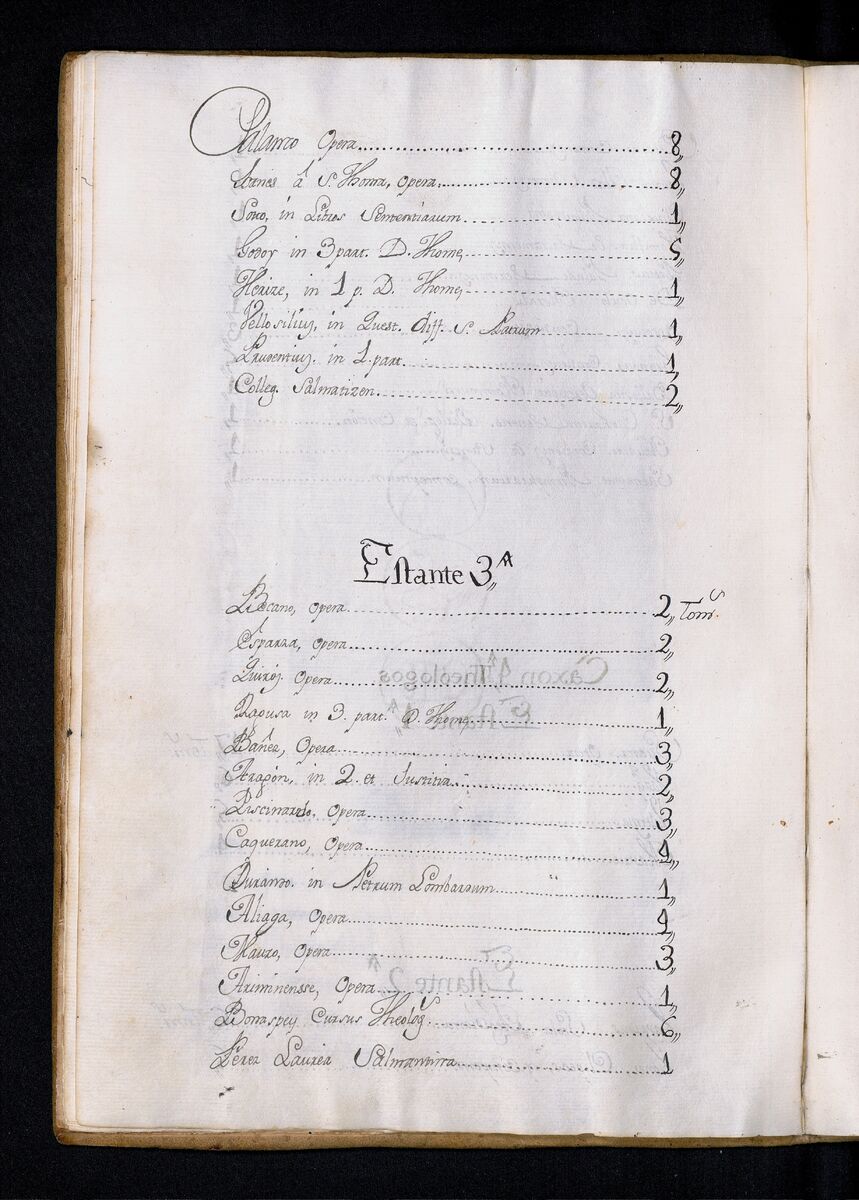 Palanco Opera 8,,
Joanes â S. Thoma, opera 8,,
Soto, in Libros Sententiarum 1,,
Godoy in 3 part. D. Thome, 5,,
Herize, in 1 p. D. Thome, 1,,
Vellosilius, in Quest. diff. S. Patrum 1,,
Prudentius. in 1. part. 1,,
Colleg. Salmatizen. 2,,
Estante 3,,ᴬ
Becano, opera 2,, Tomˢ.
Esparza, opera 2,,
Quirós Opera 2,,
Ragusa in 3. part. D. Thome, 1,,
Bañez, Opera 3,,
Aragón, in 2. et Justitia 2,,
Piscinardo. Opera 3,,
Caquerano, Opera 4,,
Durando. in Petrum Lombardum 1,,
Aliaga, Opera 4,,
Mauro, Opera 3,,
Ariminensse, Opera 1,,
Bonaspey Cursus Theolog. 6,,
Perez Laurea Salmantina 1